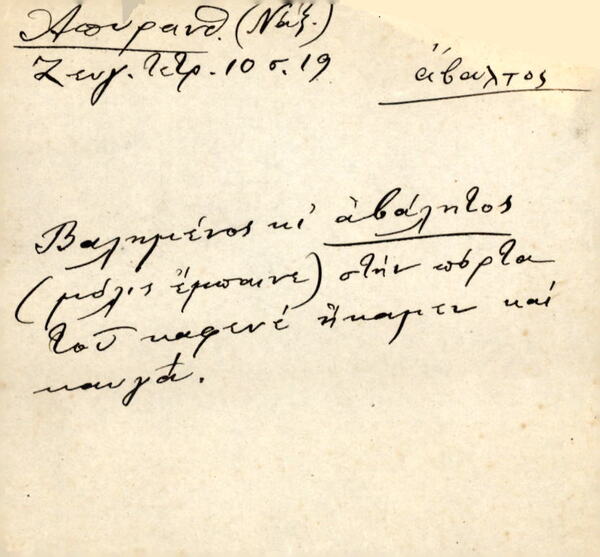 Ἀπυρανθ. (Νάξ.)
Ζευγ. Τετρ. 10 σ. 19
ἄβαλτος
Βαλημένος κι' ἀβάλητος
(μόλις ἔμπαινε) στὴν πόρτα
τοῦ καφενέ ἤκαμεν καὶ
καυγᾶ.